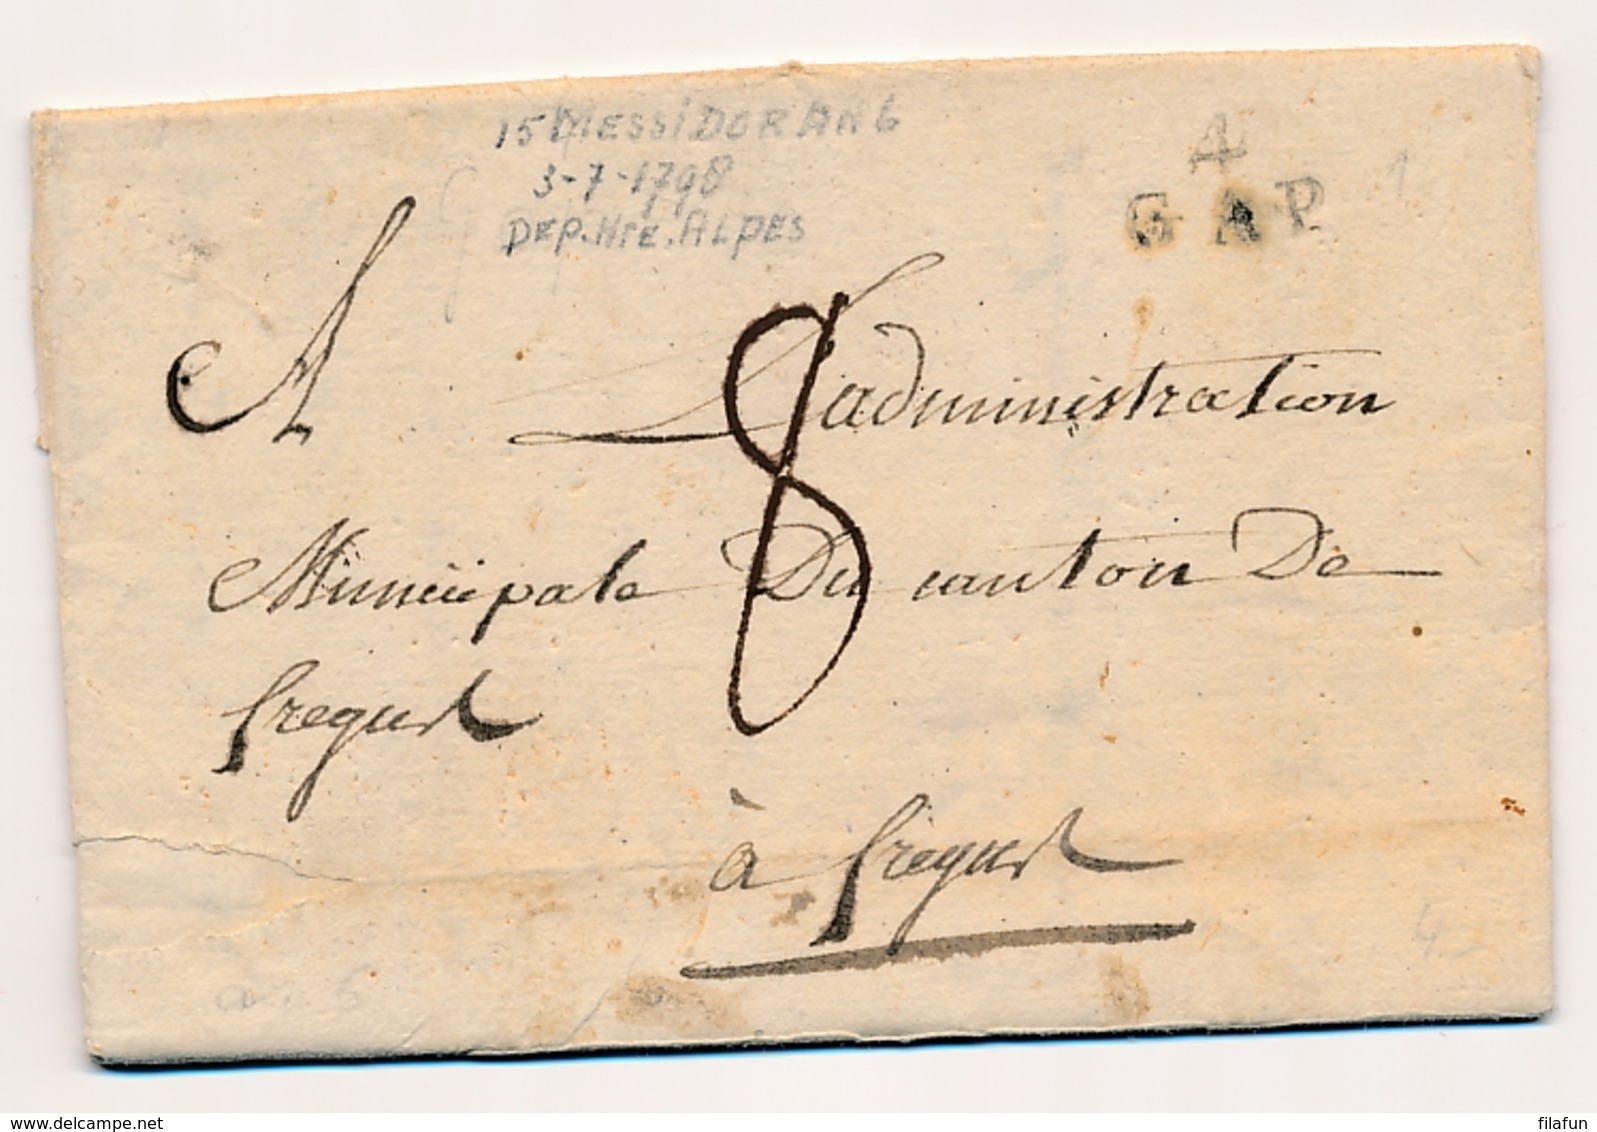 15 MESSIDOR AN 6
3-7-1798
DEP. Hte. ALPES
4
GAP
1
8
A L'administration
Municipale Du canton De
frejus
à frejus
4
an 6
delcampe.net
filafun